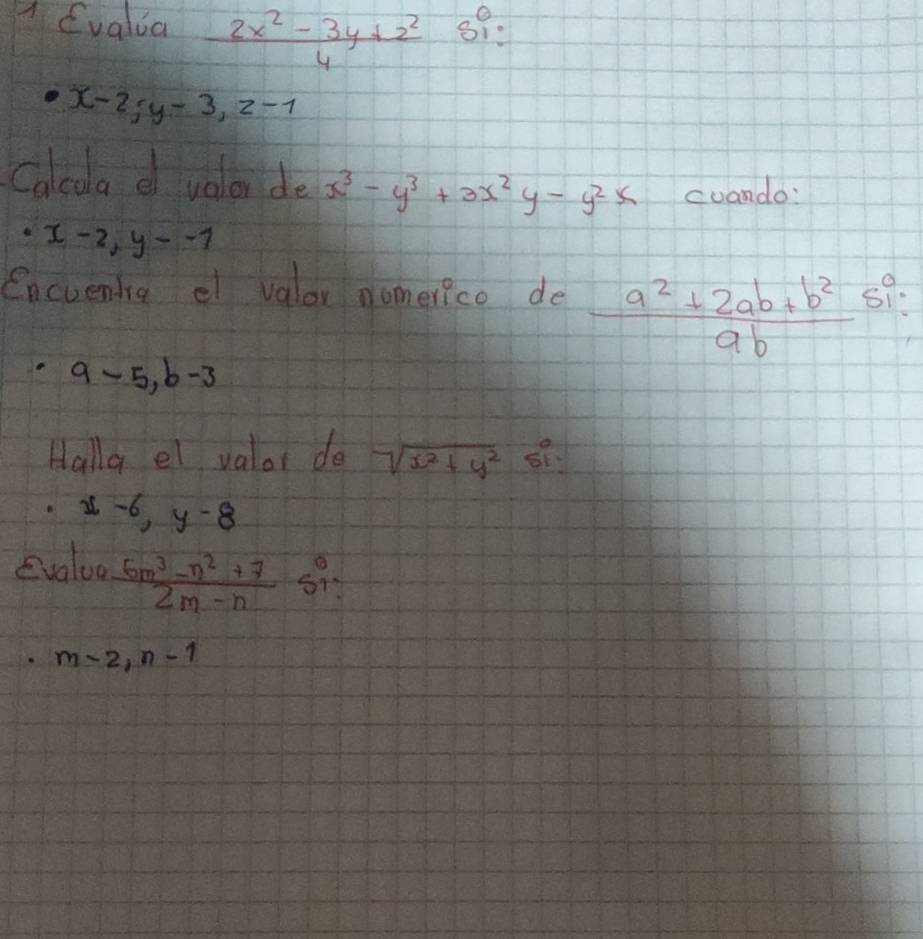 1 Evalúa (2x² - 3y + z²)/4 si:
• x-2; y-3, z-1
Calcula el valor de x³ - y³ + 3x²y - y²x cuando:
• x-2, y--1
Encuentra el valor numerico de (a² + 2ab + b²)/ab si:
• a-5, b-3
Halla el valor de √(x² + y²) si:
• x-6, y-8
Evalua (5m³ - n² + 7)/(2m - n) si:
• m-2, n-1